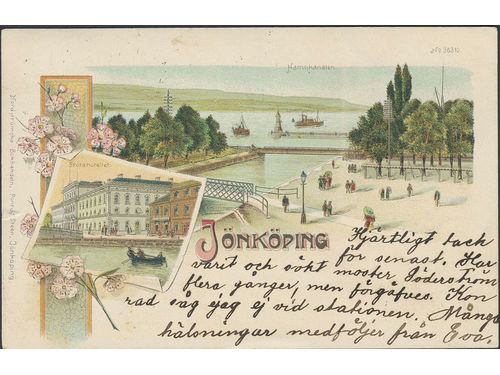 No 3631c
Hamnkanalen
Storahotellet
JÖNKÖPING
Hjärtligt tack
för senast. Har
varit och sökt moster Söderström
flera gånger, men förgäfves. Kon
rad såg jag ej vid stationen. Många
hälsningar medföljer från Eva.